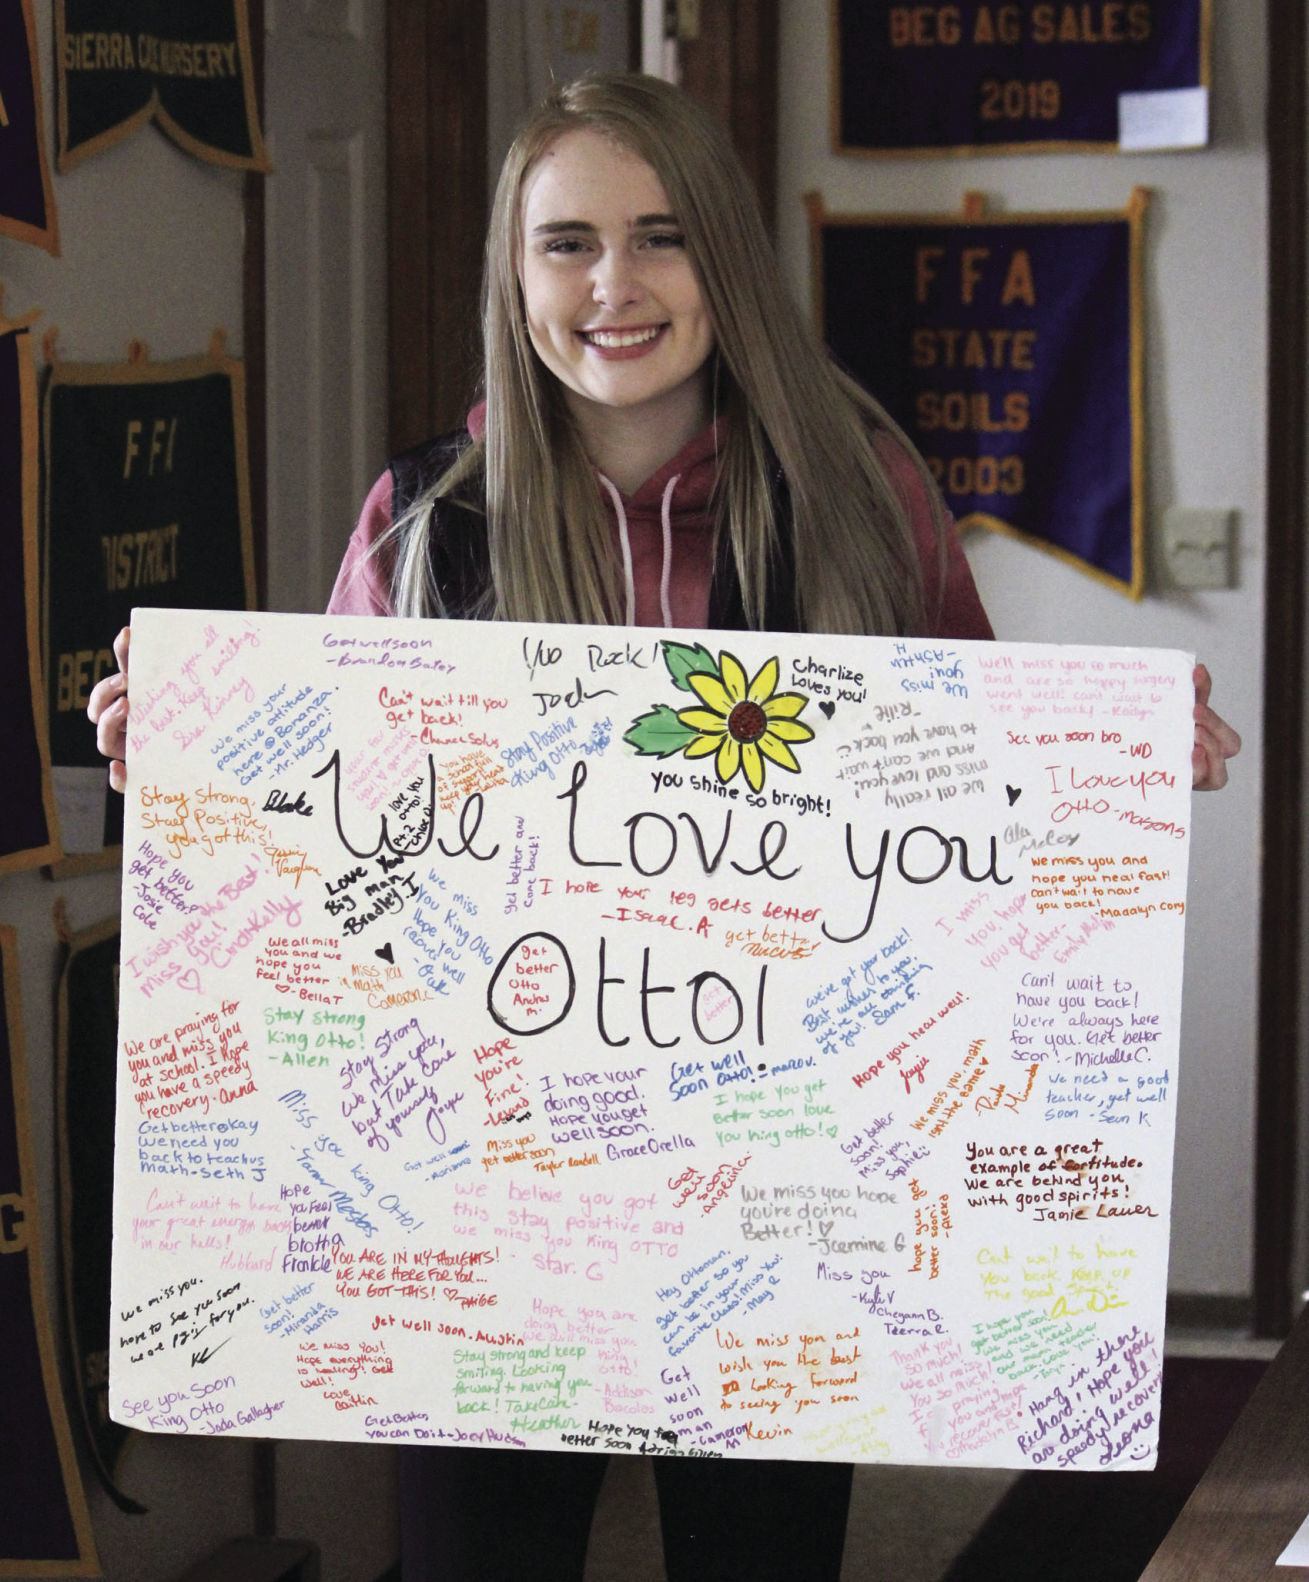 SIERRA
NURSERY
BEG AG SALES
2019
FFA
STATE
SOILS
2003
DISTRICT
Wishing you all
the best. Keep smiling!
Get well soon
-Brandon Bailey
You Rock!
Charlize
Loves you!
We miss
you!
We'll miss you so much
and are so happy surgery
went well! can't wait to
see you back! -Kadyn
We miss your
positive attitude
here @ Bonanza.
Get well soon!
-Mr. Hedger
Can't wait till you
get back!
-Chance Solus
Stay Positive
King Otto
You shine so bright!
We all really
miss and love you!
And we can't wait
to have you back!
see you soon bro
-WD
I Love you
Otto -masons
Blake
Stay Strong,
Stay Positive,
you got this!
We Love you
Otto!
Love You
Big man
-Bradley.I
love You
Otto!
get better and
come back!
I hope your leg gets better
-Isaac. A
get better
We miss you and
hope you heal fast!
can't wait to have
you back!
-Madalyn Cory
Hope you
get better.
-Josie
Cole
I wish you the Best!
miss you!
We miss
you King Otto
Hope you
recover well
We all miss
you and we
hope you
feel better
-Bella T
Miss you
in math
Cameron.C
get
better
Otto
Andres
M.
get
better
We've got your back!
Best wishes to you.
we're all thinking
of you! Sam F.
I miss
you, hope
you get
better-
Can't wait to
have you back!
We're always here
for you. Get better
soon! -Michelle C.
Stay Strong
King Otto!
-Allen
We are praying for
you and miss you
at school. I hope
you have a speedy
recovery. -anna
Stay Strong
We miss you,
but Take care
of yourself
Hope
you're
Fine!
I hope your
doing good.
Hope you get
well soon.
Grace Orella
Get well
Soon Otto!
I hope you get
Better soon love
You King Otto!
Hope you heal well!
We miss you, math
isn't the same
We need a good
teacher, get well
soon - Sean K
Get better okay
We need you
back to teach us
math - Seth J
Miss ya King Otto!
Get well soon!
Miss you
get better soon
Taylor Randell
Get
well
soon
-Angelina
Get better
soon!
miss you,
Sophie
You are a great
example of fortitude.
We are behind you
with good spirits!
Jamie Lauer
Can't wait to have
your great energy back
in our halls!
Hubbard
Hope
you Feel
better
brotha
Frankie
We belive you got
this stay positive and
we miss you King OTTO
Star. G
We miss you hope
you're doing
Better!
-Jazmine G
hope you get
better soon!
You ARE IN MY THOUGHTS!
WE ARE HERE FOR YOU...
YOU GOT THIS! PAIGE
Can't wait to have
you back. Keep up
The good
Miss you
-Kylie V
Cheyann B.
Teerra R.
We miss you.
hope to see you soon
Get better
soon!
-Miranda
Harris
Hey Ottoman,
get better so you
can be in your
favorite class! Miss You!
- May
get well soon. Austin
We miss You!
Hope everything
is healing! Get
well!
Love
Caitlin
Hope you are
doing better
we still miss you
King
Otto!
-Addison
Stay strong and keep
smiling. Looking
forward to having you
back! Take Care-
Heather
We miss you and
wish you the best
Looking forward
to seeing you soon
Kevin
Get
well
soon
man
-Cameron
M
See you soon
King Otto
-Jada Gallagher
Get Better,
you can Do it - Joey Hudson
Hope you
better soon
Thank you
so much!
We all miss
You so much!
Hang in there
Richard! Hope you
are doing well!
speedy recovery!
Leona